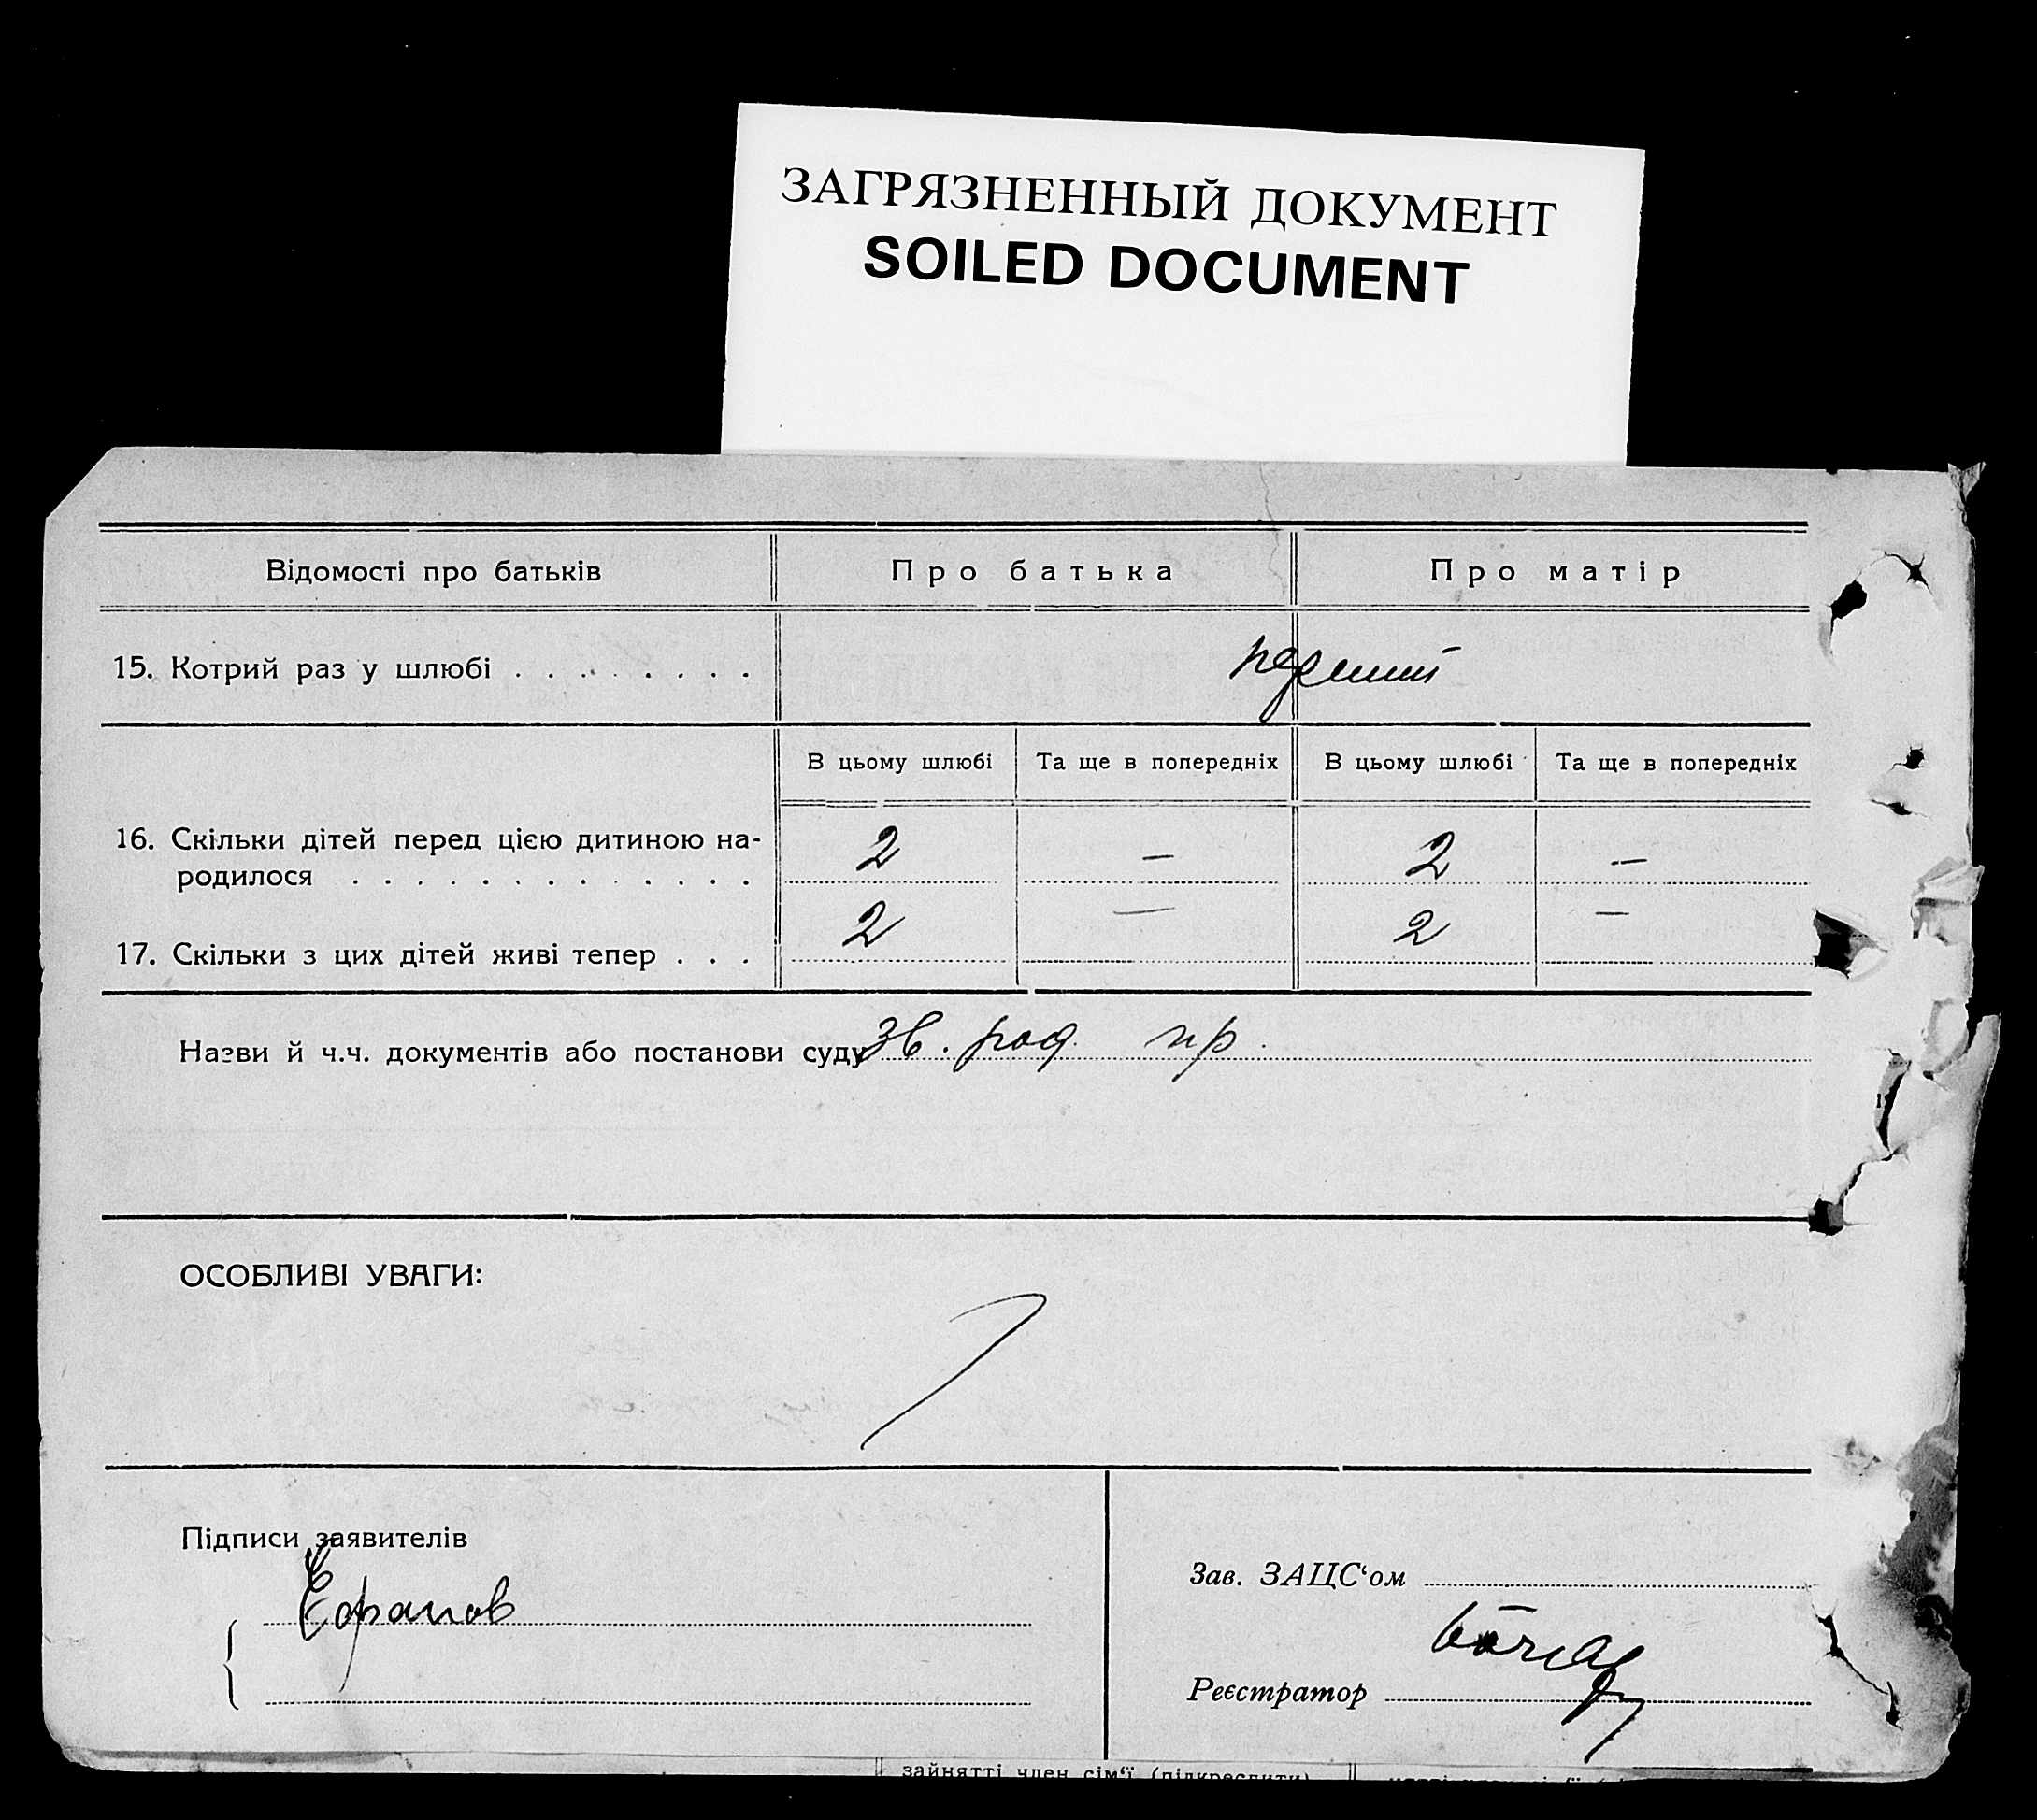 ЗАГРЯЗНЕННЫЙ ДОКУМЕНТ
SOILED DOCUMENT
Відомості про батьків Про батька Про матір
15. Котрий раз у шлюбі . . . . . . . . перший
В цьому шлюбі Та ще в попередніх В цьому шлюбі Та ще в попередніх
16. Скільки дітей перед цією дитиною на-
родилося . . . . . . . . . . . . . 2 — 2 —
17. Скільки з цих дітей живі тепер . . . 2 — 2 —
Назви й ч.ч. документів або постанови суду зв. род. пр.
ОСОБЛИВІ УВАГИ:
Підписи заявителів
Зав. ЗАЦС‘ом
Реєстратор
зайнятті член сім‘ї (підкреслити)